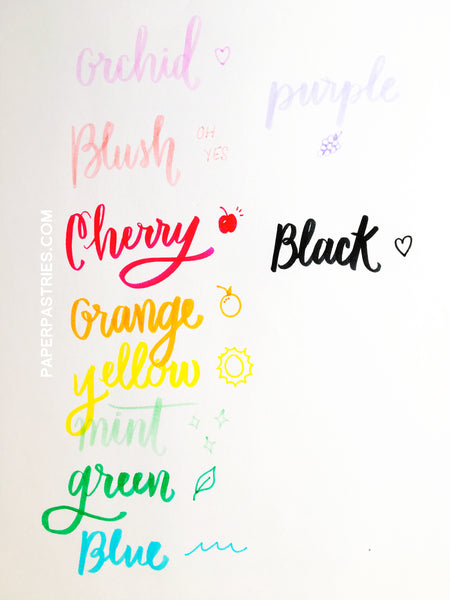 orchid
Blush
OH
YES
Cherry
orange
yellow
mint
green
Blue
purple
Black
PAPERPASTRIES.COM